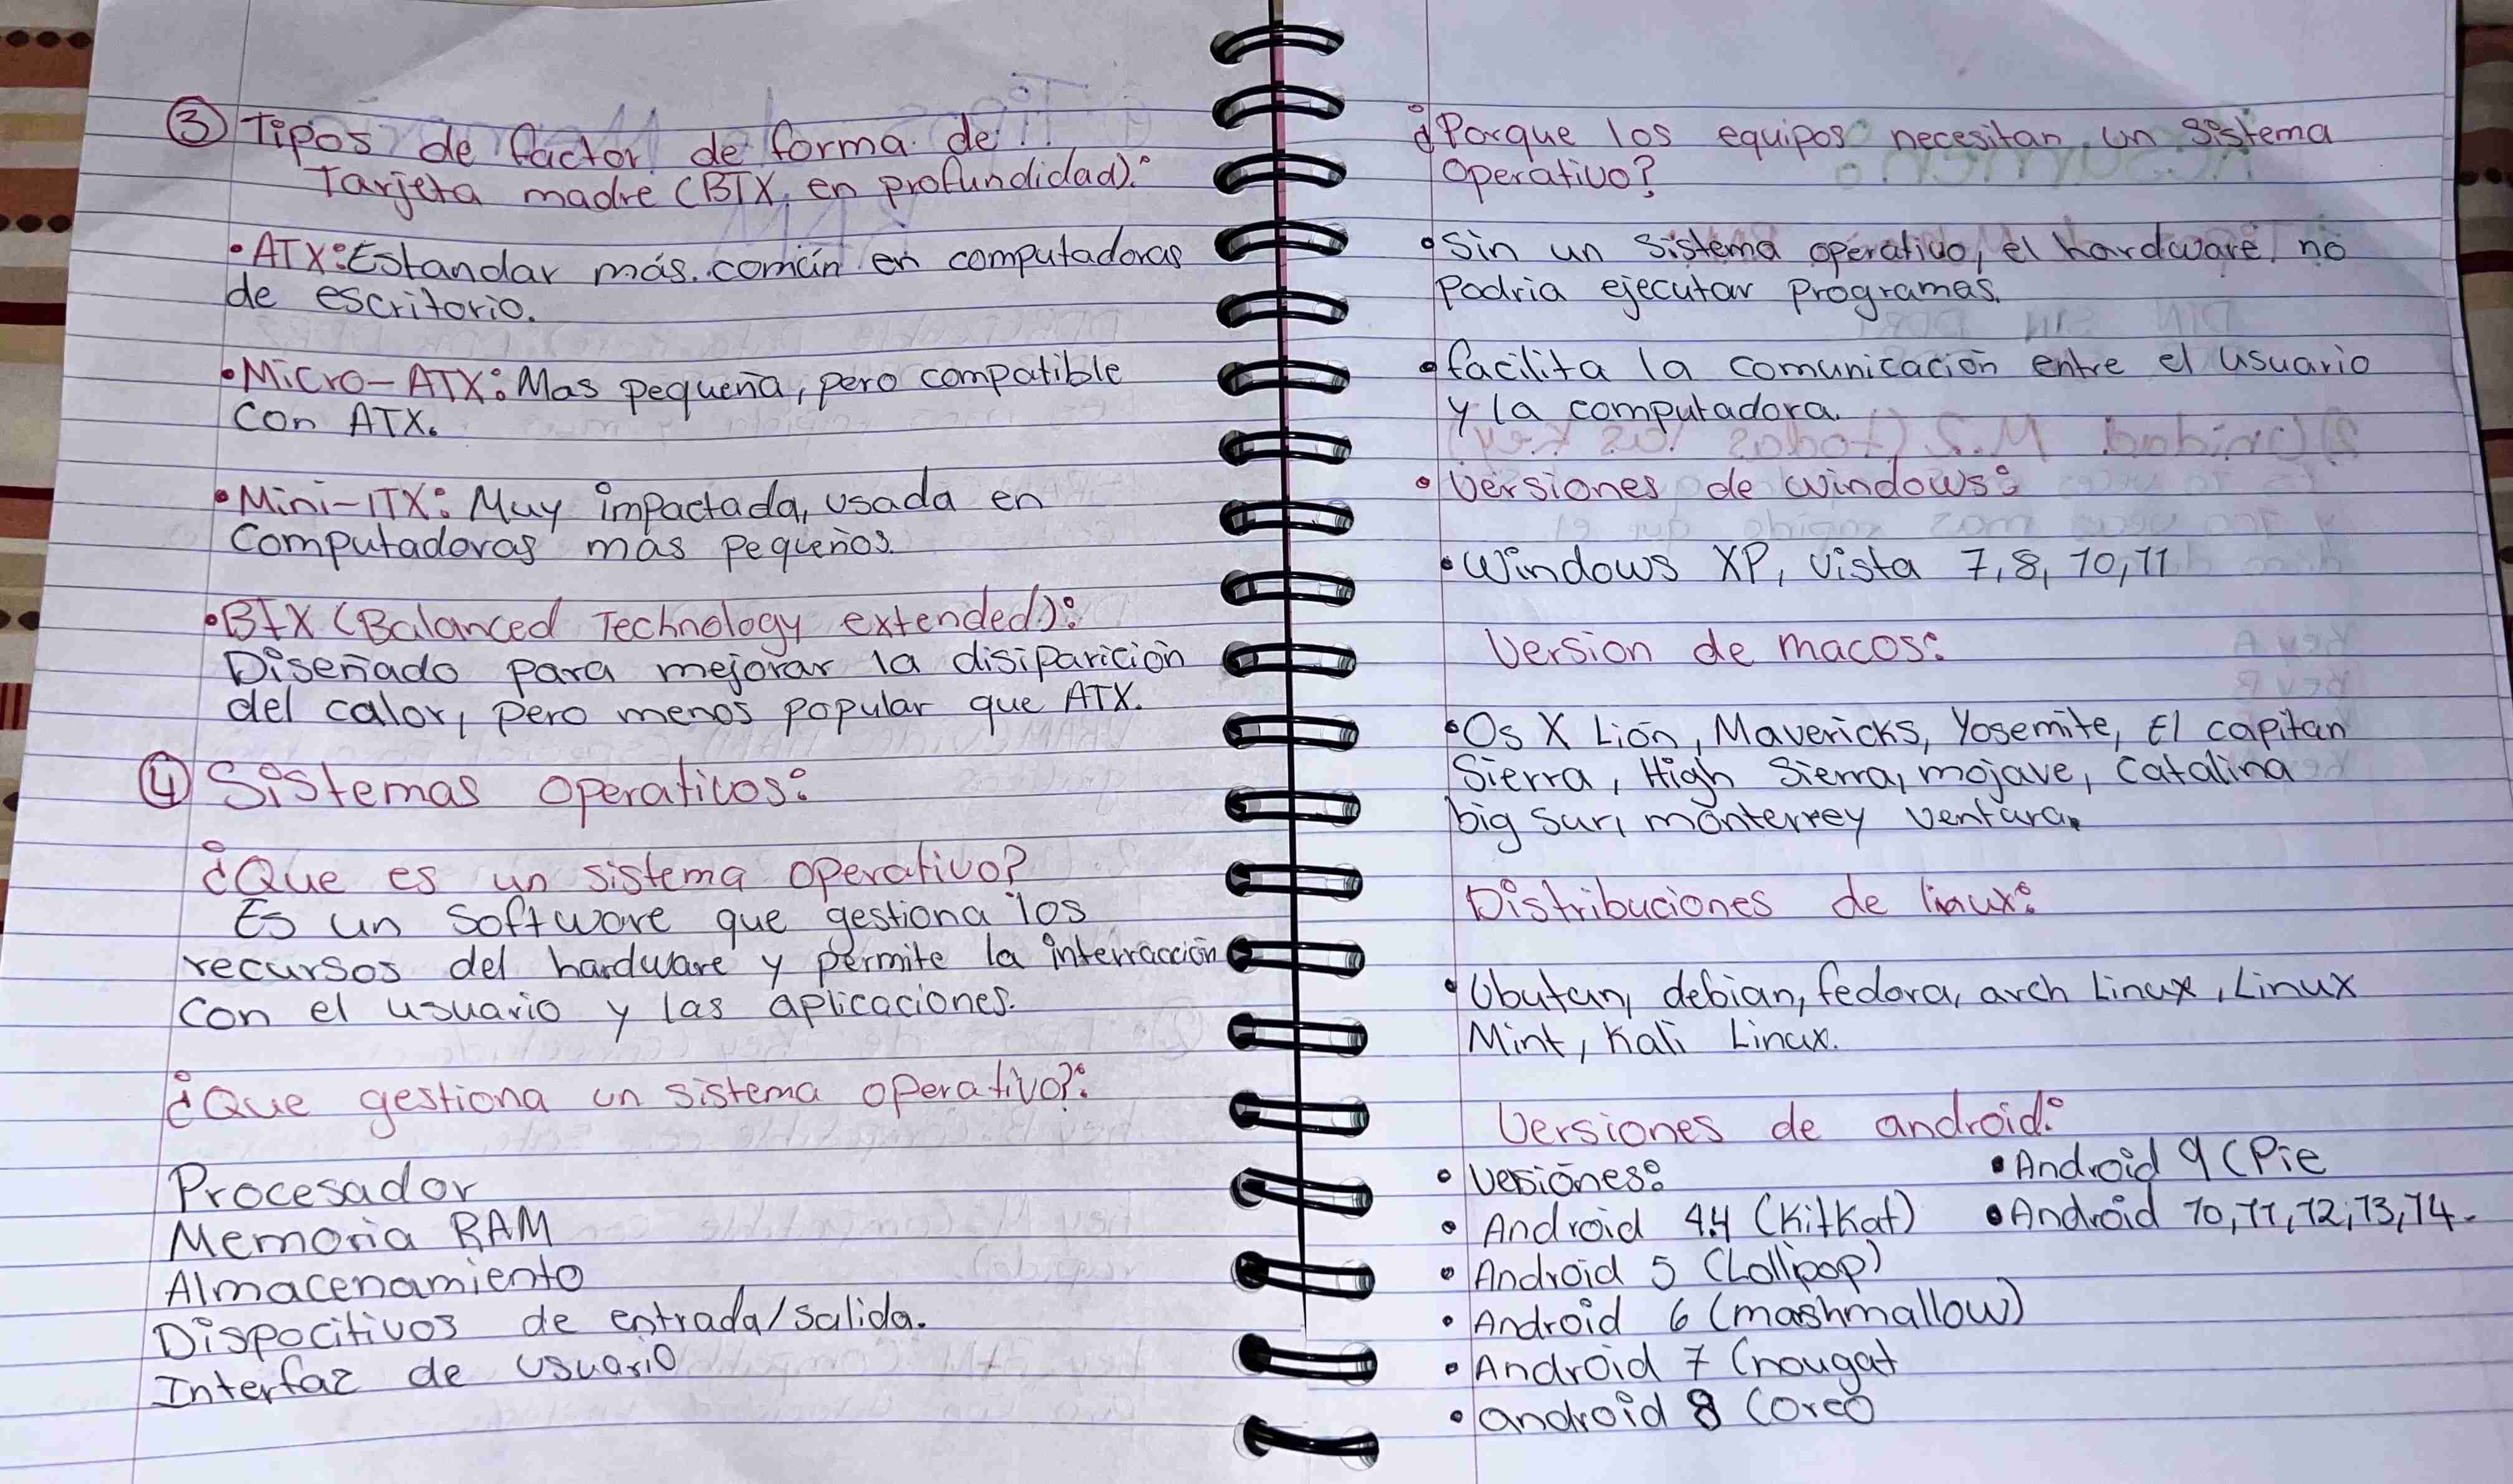 ③ Tipos de factor de forma de
Tarjeta madre (BTX, en profundidad):
• ATX: Estandar más común en computadoras
de escritorio.
• Micro-ATX: Mas pequeña, pero compatible
con ATX.
• Mini-ITX: Muy impactada, usada en
Computadoras más pequeños.
• BTX (Balanced Technology extended):
Diseñado para mejorar la disiparición
del calor, pero menos popular que ATX.
④ Sistemas operativos:
¿Que es un sistema operativo?
Es un software que gestiona los
recursos del hardware y permite la interracción
Con el usuario y las aplicaciones.
¿Que gestiona un sistema operativo?:
Procesador
Memoria RAM
Almacenamiento
Dispocitivos de entrada/salida.
Interfaz de usuario
¿Porque los equipos necesitan un sistema
operativo?
• Sin un sistema operativo, el hardware no
Podria ejecutar programas.
• facilita la comunicación entre el usuario
y la computadora.
• Versiones de windows:
• Windows XP, Vista 7, 8, 10, 11
Version de macos:
• Os X Lión, Mavericks, Yosemite, El capitan
Sierra, High Sierra, mojave, Catalina
big sur, mónterrey ventura.
Distribuciones de linux:
• Ubutun, debian, fedora, arch Linux, Linux
Mint, Kali Linux.
Versiones de android:
• Vesiónes:
• Android 4.4 (KitKat)
• Android 5 (Lollipop)
• Android 6 (mashmallow)
• Android 7 (nougat
• android 8 (oreo
• Android 9 (Pie
• Android 10, 11, 12, 13, 14.